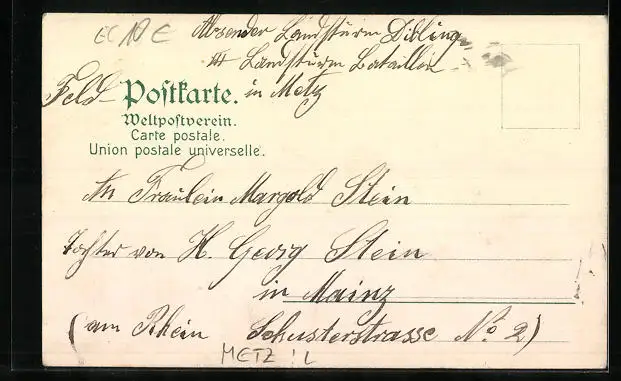 EC 10 E
Absender Landsturm Dibling
III Landsturm Bataillon
Feld- Postkarte. in Metz
Weltpostverein.
Carte postale.
Union postale universelle.
An Fräulein Margold Stein
Tochter von H. Georg Stein
in Mainz
(am Rhein Schusterstrasse No 2)
METZ